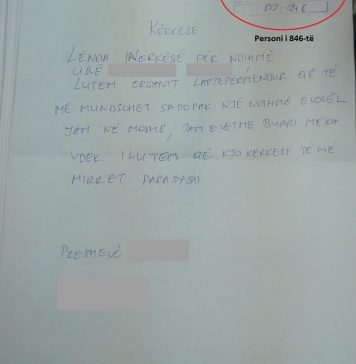 012-846
Personi i 846-të
KËRKESË
LËNDA KËRKESË PËR NDIHMË
UNË
LUTEM ORGANIT LARTËPËRMENDUR QË TË
MË MUNDSOHET SADOPAK NJË NDIHMË E VOGËL
JAM NË MOSHË, JAM E VETME BURRI ME KA
VDEK I LUTEM QË KJO KËRKESË TË ME
MIRRET PARASYSH
PRESHEVË